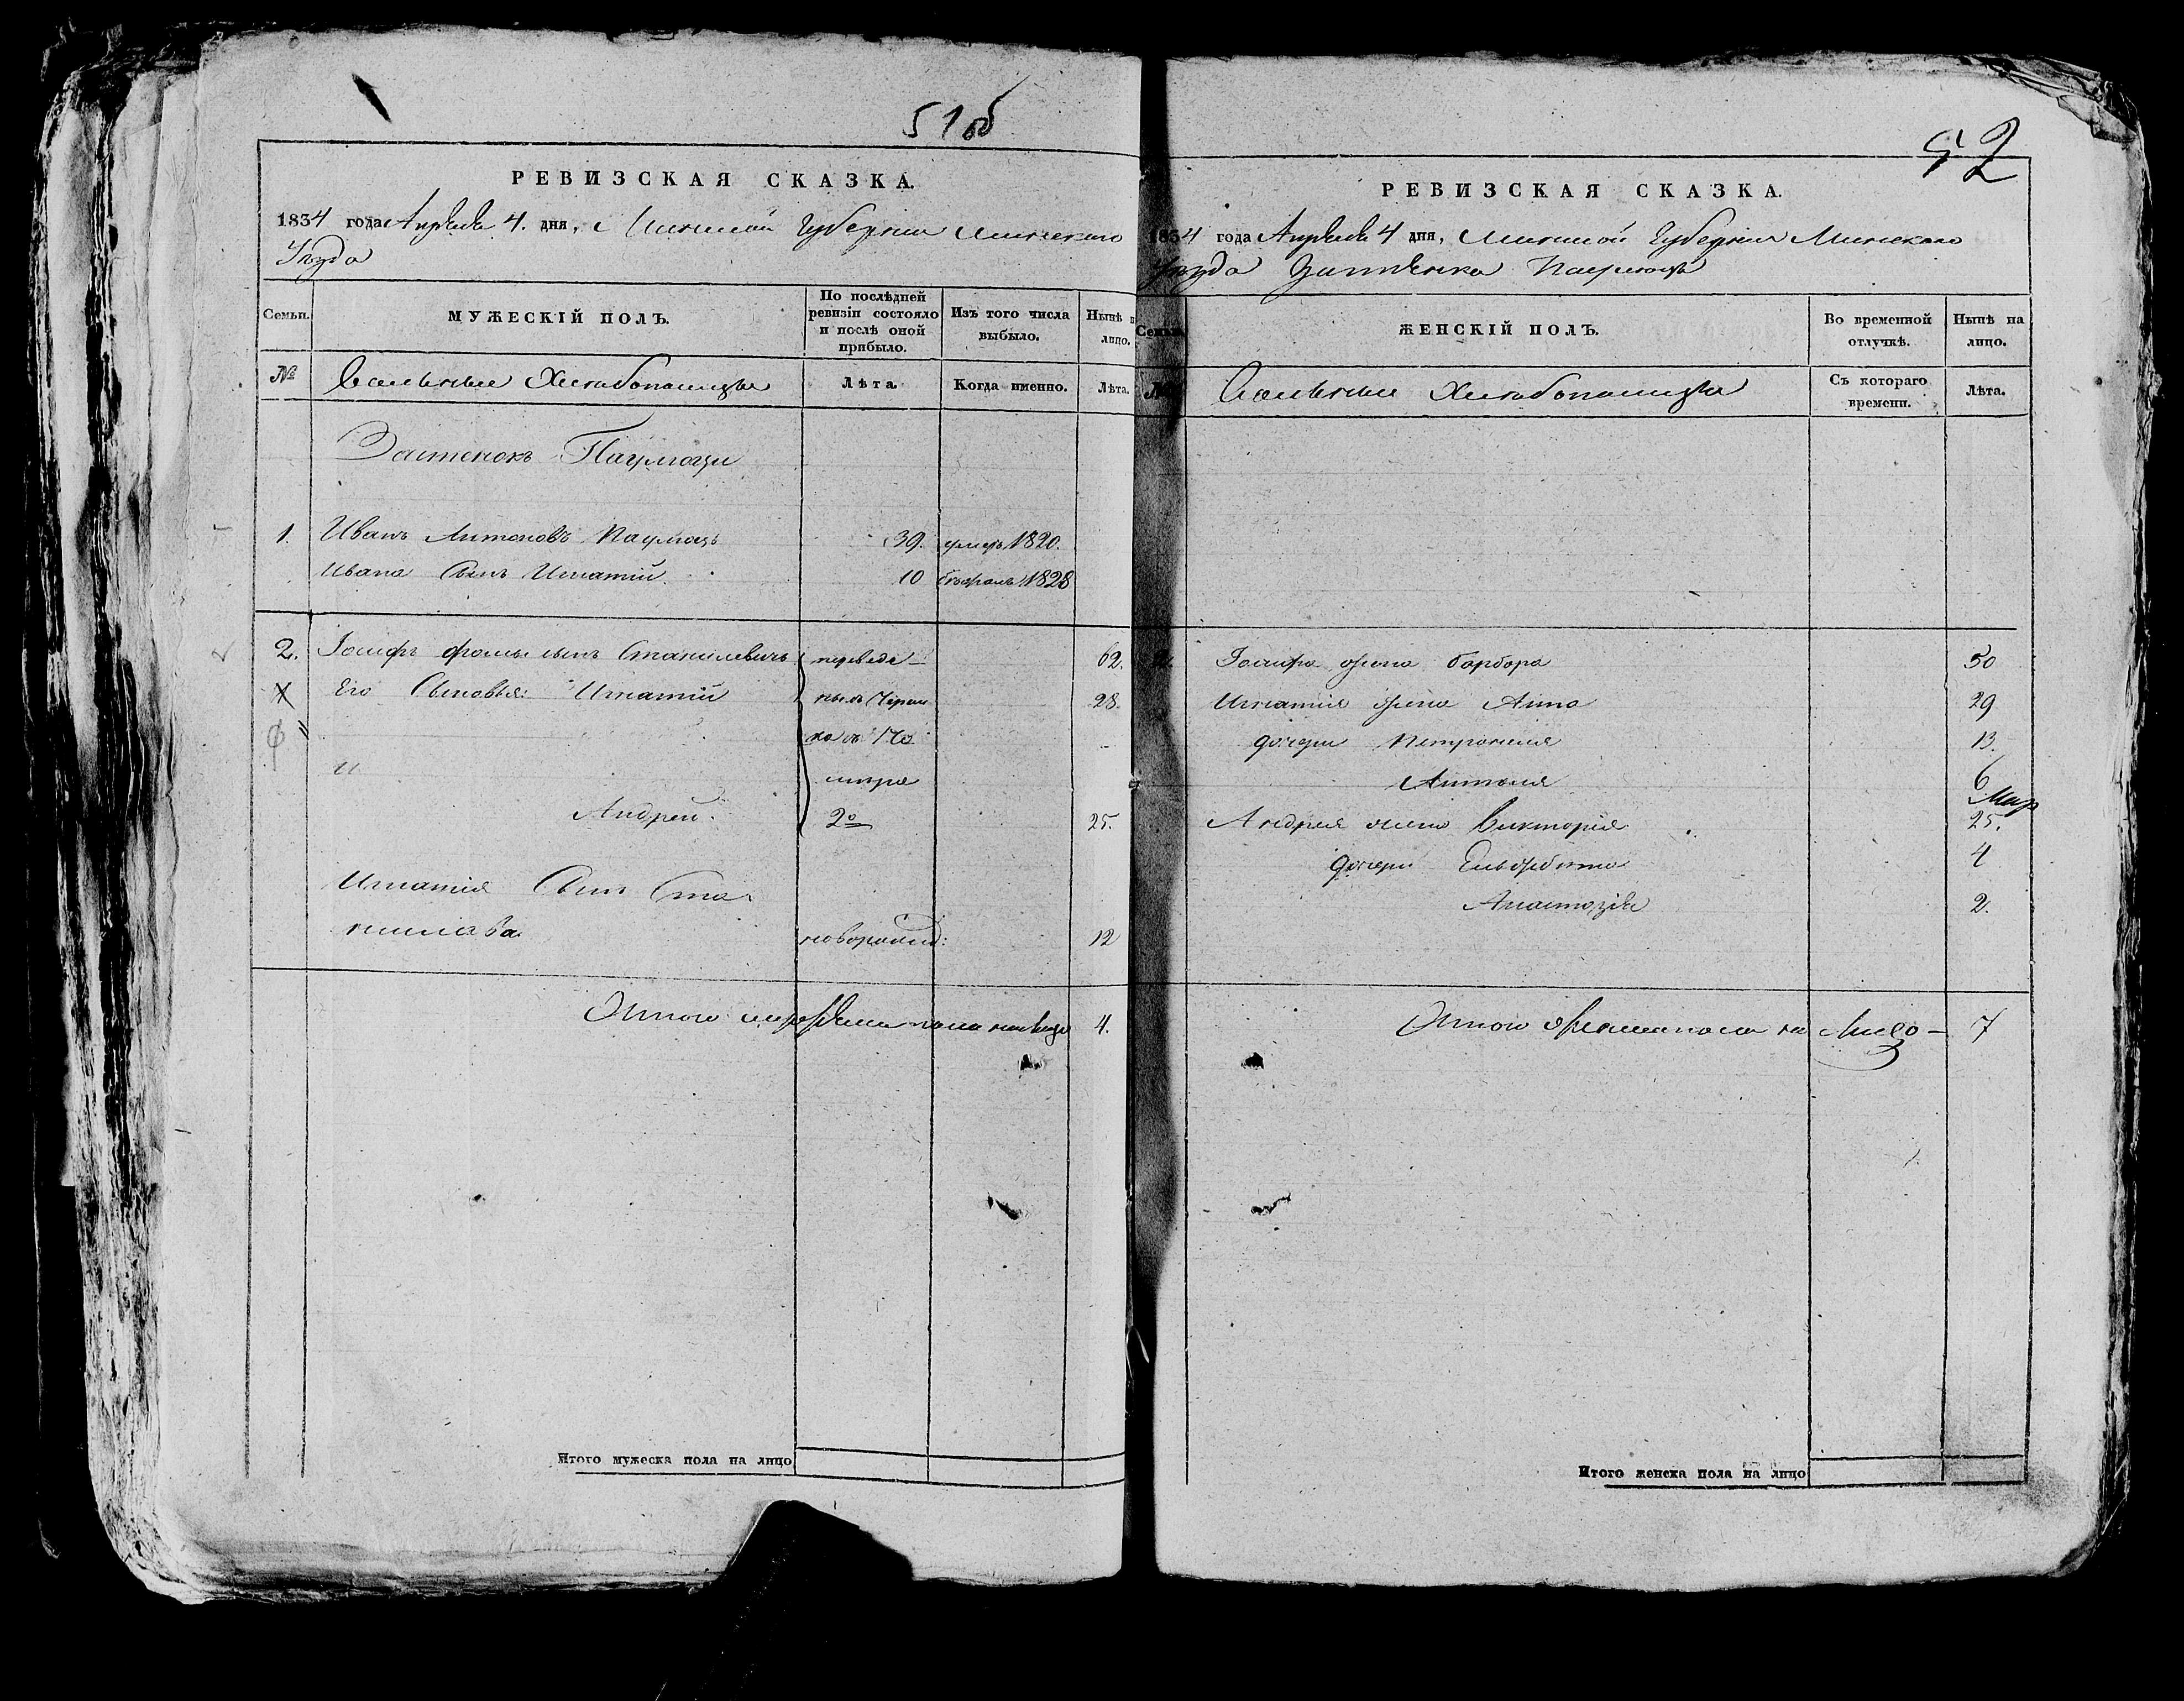 51 об
РЕВИЗСКАЯ СКАЗКА.
1834 года Апреля 4. дня, Минской Губернии Минскаго
Уезда
Семьи.
МУЖЕСКІЙ ПОЛЪ.
По послѣдней ревизіи состояло и послѣ оной прибыло.
Изъ того числа выбыло.
Нынѣ
лицо.
№
Вольные Хлебопашцы
Лѣта.
Когда именно.
Лѣта.
Застенокъ
1. Иванъ Антоновъ 39. умеръ 1820.
Ивана Сынъ Игнатій 10 1828
2. Іосифъ Фомы сынъ Станилевичъ переведе- 62.
Его Сыновья: Игнатій 28.
и
Андрей. 2º 25.
Игнатія Сынъ Ста-
нислава новорожд: 12
Итого мужеска пола на лицо 4.
Итого мужеска пола на лицо
52
РЕВИЗСКАЯ СКАЗКА.
1834 года Апреля 4 дня, Минской Губернии Минскаго
уезда Застенка
Семьи.
ЖЕНСКІЙ ПОЛЪ.
Во временной отлучкѣ.
Нынѣ на лицо.
№
Вольные Хлебопашцы
Съ котораго времени.
Лѣта.
Іосифа жена Барбара 50
Игнатія жена Анна 29
дочери Петронеля 13.
6
Андрея жена Викторія 25.
дочери Ельжбета 4
Анастазія 2.
Итого женска пола на Лицо - 7
Итого женска пола на лицо